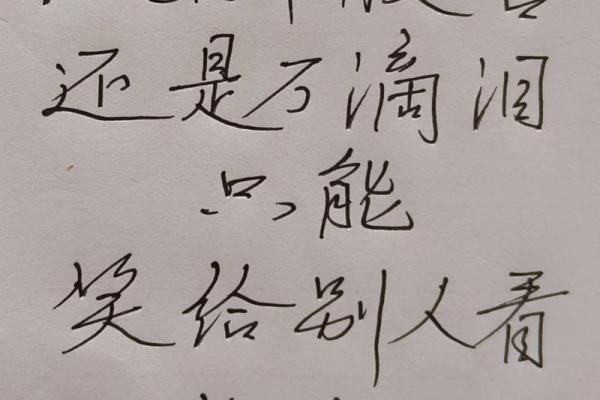 还是万滴泪
只能
笑给别人看